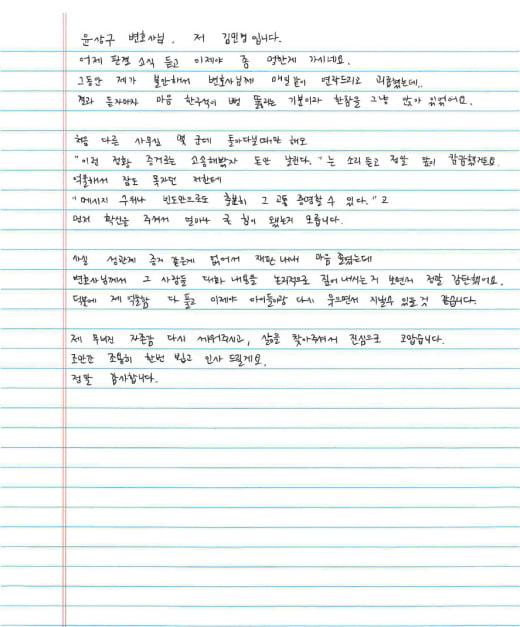 윤상구 변호사님. 저 김민경입니다.
어제 판결 소식 듣고 이제야 좀 멍한게 가시네요.
그동안 제가 불안해서 변호사님께 매일같이 연락드리고 괴롭혔는데..
결과 듣자마자 마음 한구석이 뻥 뚫리는 기분이라 한참을 그냥 앉아 있었어요.
처음 다른 사무실 몇 군데 돌아다녔때만 해도
"이런 정황 증거로는 소송해봤자 돈만 날린다." 는 소리 듣고 정말 앞이 캄캄했거든요
억울해서 잠도 못자던 저한테
"메시지 수위나 빈도만으로도 충분히 그 고통 증명할 수 있다." 고
먼저 확신을 주셔서 얼마나 큰 힘이 됐는지 모릅니다.
사실 성관계 증거 같은게 없어서 재판 내내 마음 졸였는데
변호사님께서 그 사람들 대화 내용을 논리적으로 짚어 내시는 거 보면서 정말 감탄했어요.
덕분에 제 억울함 다 풀고 이제야 아이들이랑 다시 웃으면서 지낼수 있을 것 같습니다.
제 무너진 자존감 다시 세워주시고, 삶을 찾아주셔서 진심으로 고맙습니다.
조만간 조용히 한번 뵙고 인사 드릴게요.
정말 감사합니다.